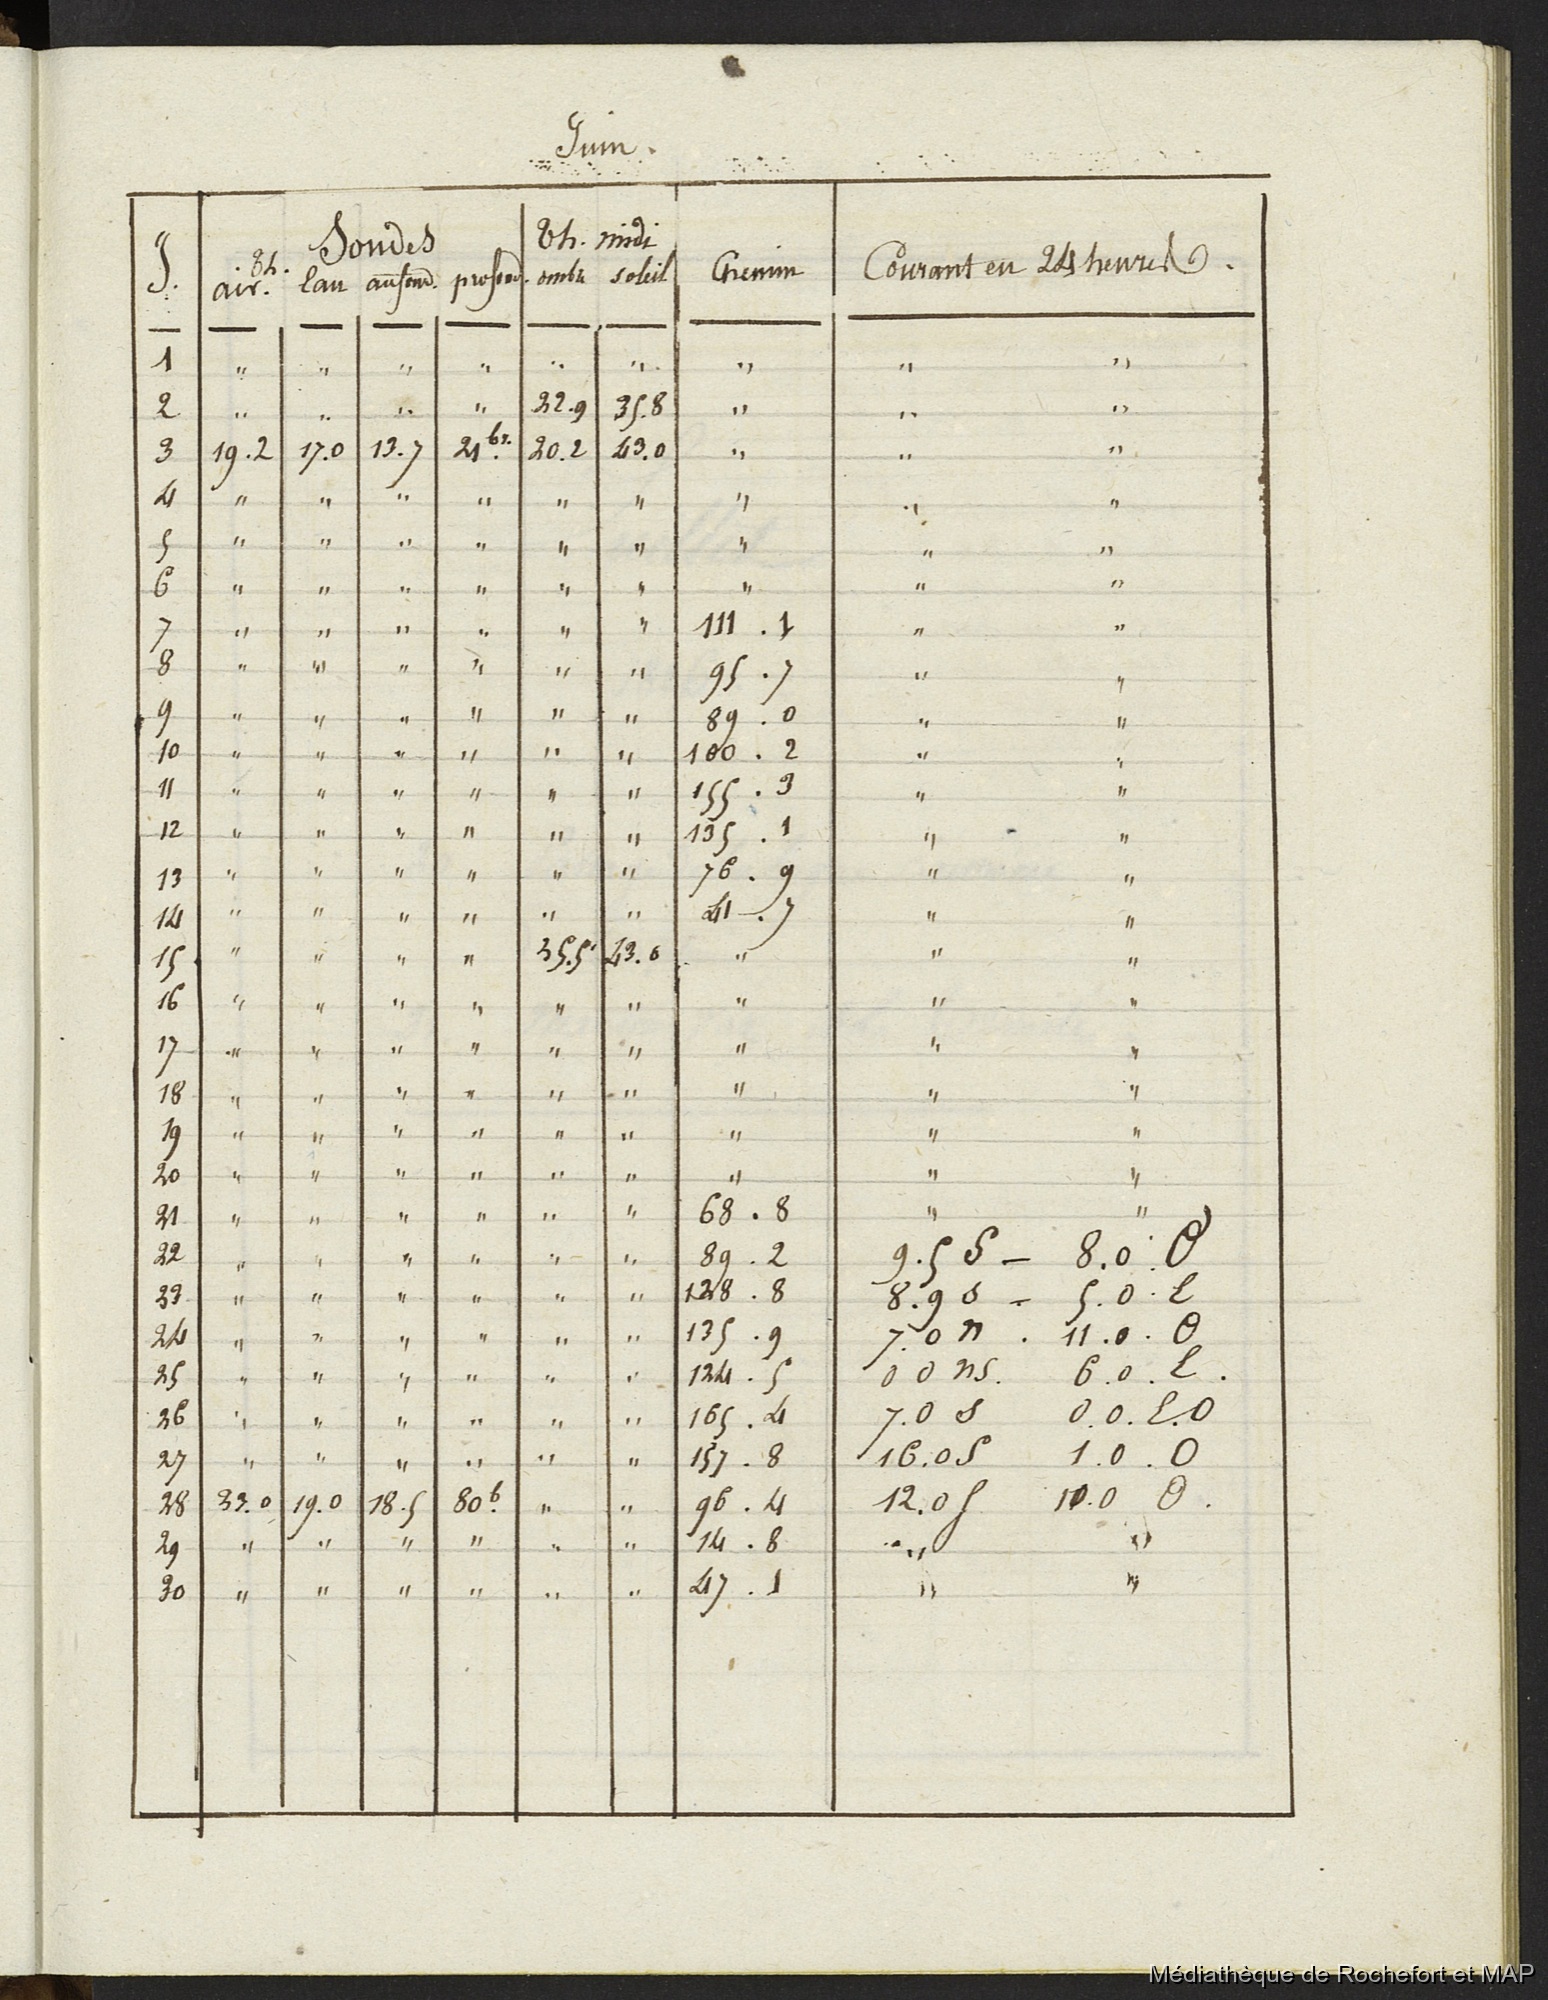 Juin.
J. Sondes Th. midi Chemin Courant en 24 heures.
Th. air. l'au au fond. profond. ombre soleil
1 " " " " " " " " "
2 " " " " 22.9 35.8 " " "
3 19.2 17.0 13.7 21 br. 20.2 43.0 " " "
4 " " " " " " " " "
5 " " " " " " " " "
6 " " " " " " " " "
7 " " " " " " 111.1 " "
8 " " " " " " 95.7 " "
9 " " " " " " 89.0 " "
10 " " " " " " 100.2 " "
11 " " " " " " 155.3 " "
12 " " " " " " 135.1 " "
13 " " " " " " 76.9 " "
14 " " " " " " 41.7 " "
15 " " " " 35.5 43.0 " " "
16 " " " " " " " " "
17 " " " " " " " " "
18 " " " " " " " " "
19 " " " " " " " " "
20 " " " " " " " " "
21 " " " " " " 68.8 " "
22 " " " " " " 89.2 9.5 S – 8.0. O
23 " " " " " " 128.8 8.9 S – 5.0. E
24 " " " " " " 135.9 7.0 n. 11.0. O
25 " " " " " " 124.5 0 0 ns. 6.0. E.
26 " " " " " " 165.4 7.0 S 0.0. E.O
27 " " " " " " 157.8 16.0 S 1.0. O
28 33.0 19.0 18.5 80 b. " " 96.4 12.0 S 10.0 O.
29 " " " " " " 14.8 " "
30 " " " " " " 47.1 " "
Médiathèque de Rochefort et MAP